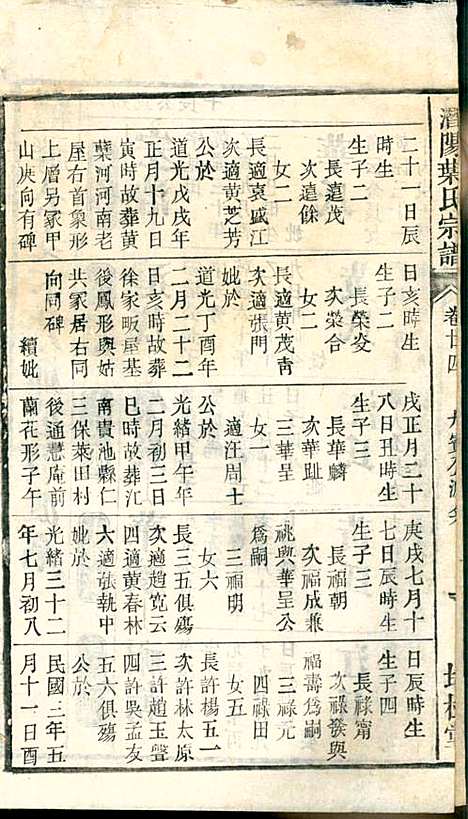 陽葉氏宗譜
卷廿四
二十一日辰
時生
生子二
長遠茂
次遠餘
女二
長適袁戚江
次適黃芝芳
公於
道光戊戌年
正月十九日
寅時故葬黃
葉河河南老
屋右首象形
上層另冢甲
山庚向有碑
日亥時生
生子二
長榮炎
次榮合
女二
長適黃茂靑
次適張門
妣於
道光丁酉年
二月二十二
日亥時故葬
徐家畈屋基
後鳳形與姑
共冢居右同
向同碑
續妣
戌正月二十
八日丑時生
生子三
長華麟
次華趾
三華呈
女一
適汪周士
公於
光緒甲午年
二月初三日
巳時故葬江
南貴池縣仁
三保菜田村
後通慧庵前
蘭花形子午
庚戌七月十
七日辰時生
生子三
長福朝
次福成兼
祧與華呈公
爲嗣
三福明
女六
長三五俱殤
次適趙寬云
四適黃春林
六適張執中
妣於
光緒三十二
年七月初八
日辰時生
生子四
長祿甯
次祿發與
福壽爲嗣
三祿元
四祿田
女五
長許楊五一
次許林太原
三許趙玉聲
四許吳孟友
五六俱殤
公於
民國三年五
月十一日酉